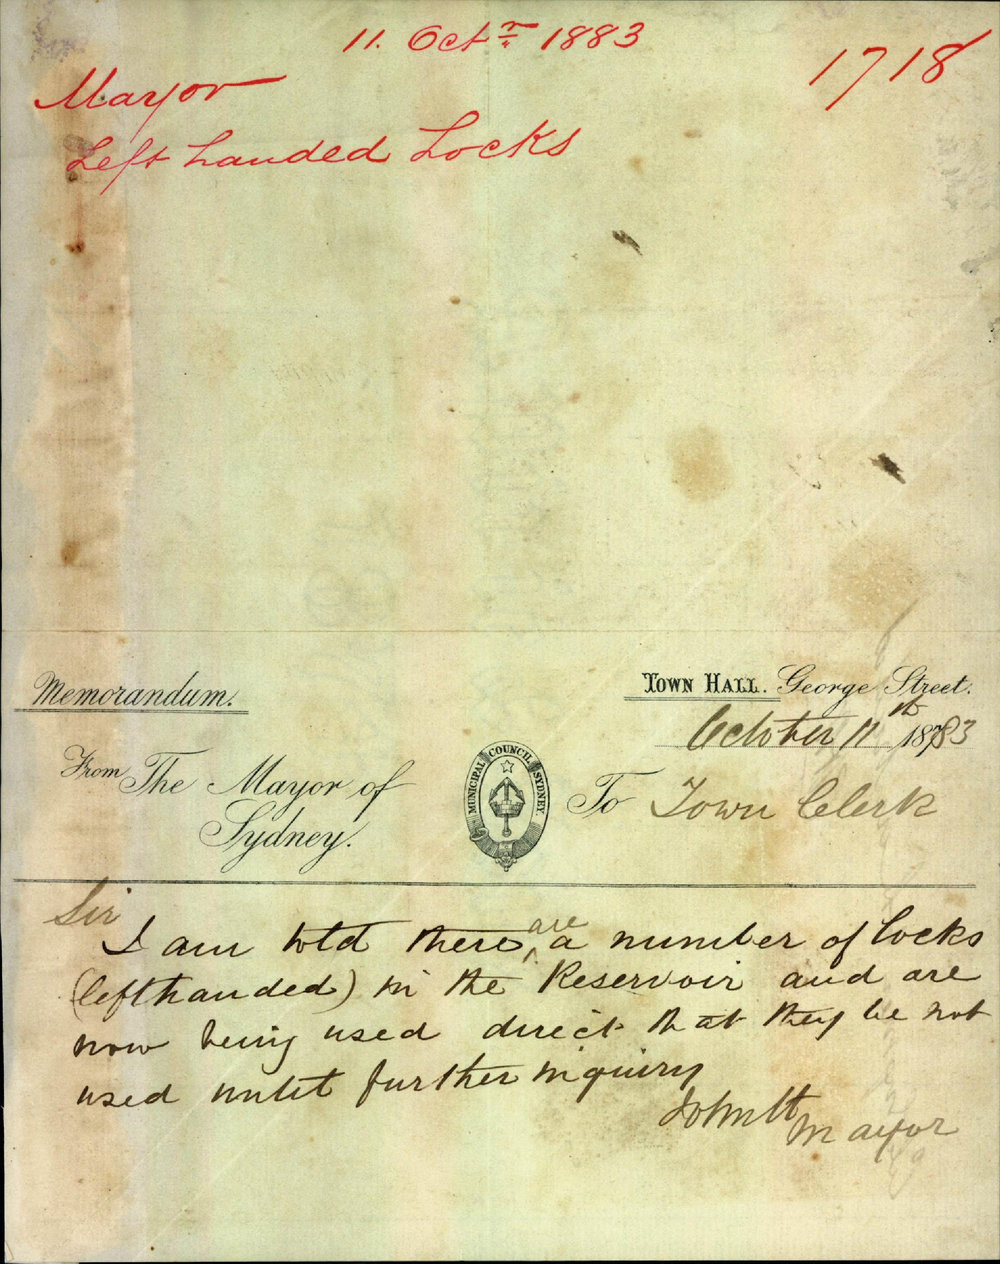 11. Octr 1883
1718
Mayor
Left handed Locks
Memorandum.
TOWN HALL. George Street.
October 11th 1883
From The Mayor of
Sydney.
MUNICIPAL COUNCIL SYDNEY
To Town Clerk
Sir
I am told there are a number of locks
(lefthanded) in the Reservoir and are
now being used direct that they be not
used until further inquiry
John H
Mayor